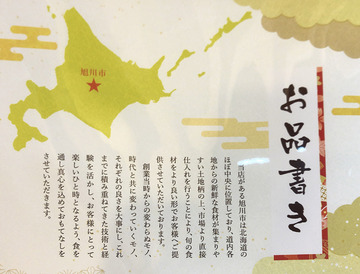 お品書き
旭川市
当店がある旭川市は北海道の
ほぼ中央に位置しており、道内各
地からの新鮮な食材が集まりや
すい土地柄の上、市場より直接
仕入れを行うことにより、旬の食
材をより良い形でお客様へご提
供させていただいております。
創業当時からの変わらぬモノ、
時代と共に変わっていくモノ、
それぞれの良さを大事にし、これ
までに積み重ねてきた技術と経
験を活かし、お客様にとって
楽しいひと時となるよう、食を
通し真心を込めておもてなしを
させていただきます。